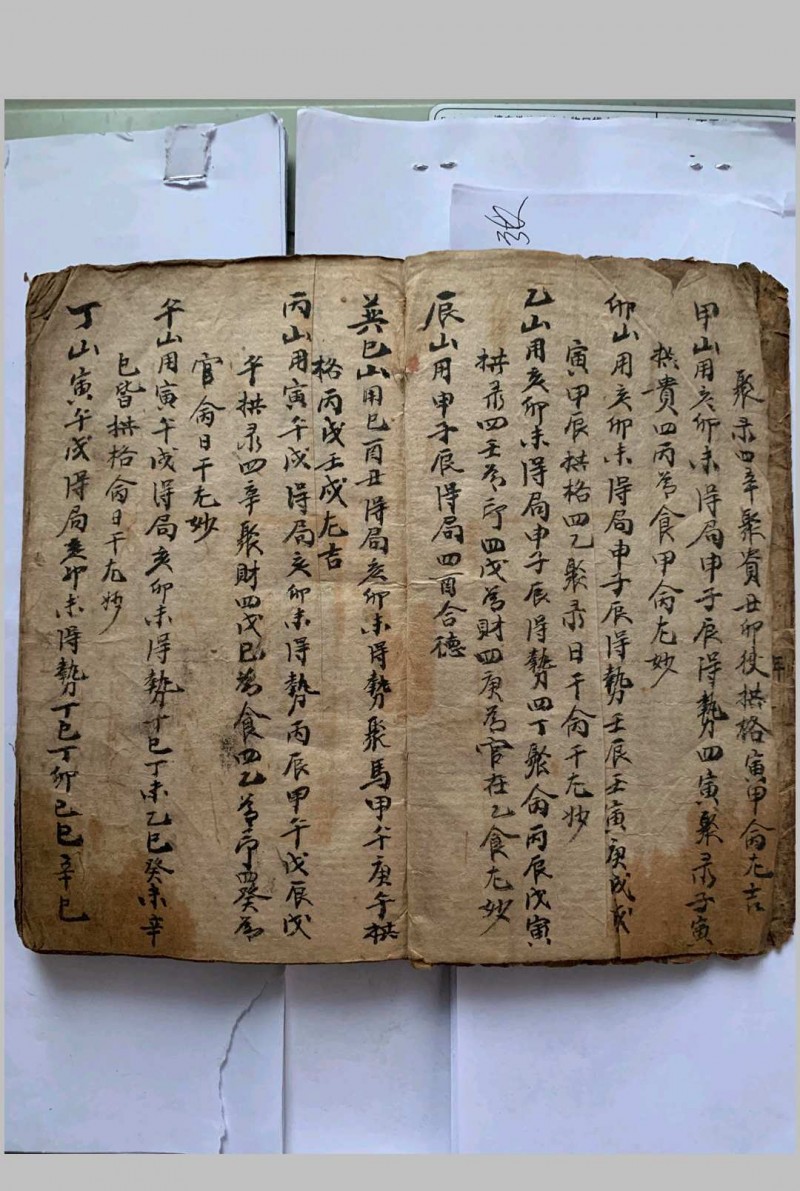 聚彔四辛聚貴丑卯役拱格寅甲侖尤吉
甲山用亥卯未得局申子辰得勢四寅聚彔子寅
拱貴四丙為食甲侖尤妙
卯山用亥卯未得局申子辰得勢壬辰壬寅庚戌戊
寅甲辰拱格四乙聚彔日干侖干尤妙
乙山用亥卯未得局申子辰得勢四丁聚侖丙辰戊寅
拱彔四壬為印四戊為財四庚為官在乙食尤妙
辰山用申子辰得局四酉合德
巽巳山用巳酉丑得局亥卯未得勢聚馬甲午庚午拱
格丙戌壬戌尤吉
丙山用寅午戌得局亥卯未得勢丙辰甲午戊辰戊
午拱彔四辛聚財四戊巳為食四乙為印四癸為
官侖日干尤妙
午山用寅午戌得局亥卯未得勢丁巳丁未乙巳癸未辛
巳皆拱格侖日干尤妙
丁山寅午戌得局亥卯未得勢丁巳丁卯己巳辛巳